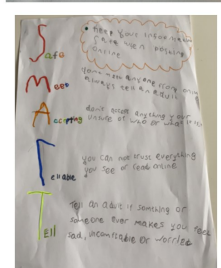 Safe
• keep your information
safe when
online
Meet
always tell an adult
Accepting
don't accept anything your
unsure of who or what it is
Reliable
you can not trust everything
you see or read online
Tell
Tell an adult if something or
someone ever makes you feel
sad, or worried